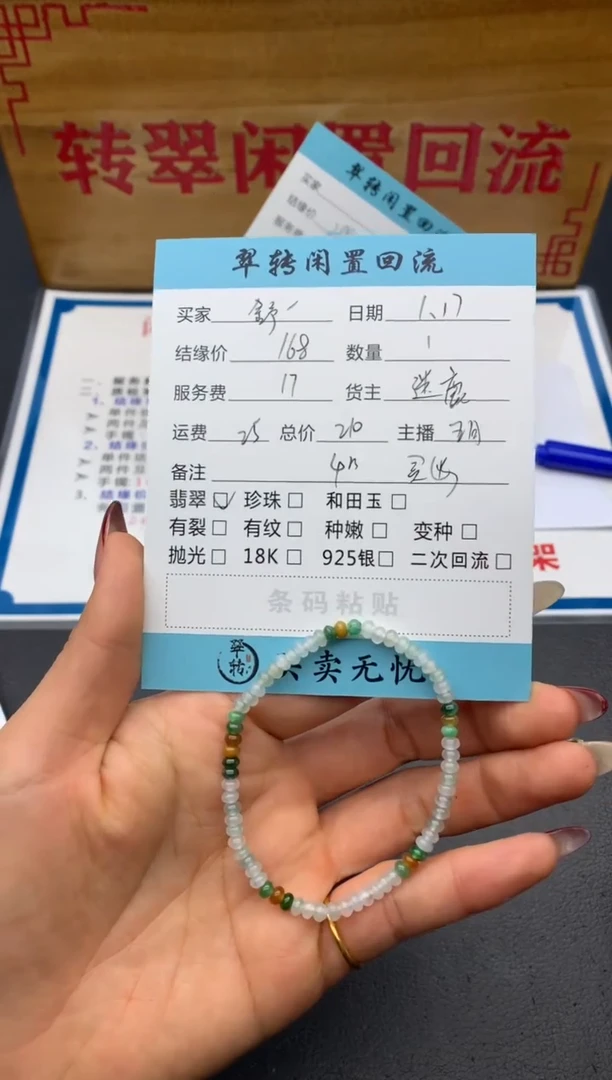 转翠闲置回流
翠转闲置回流
买家
结缘价
服务费
翠转闲置回流
买家 日期 1.17
结缘价 168 数量 1
服务费 17 货主
运费 25 总价 210 主播
备注
翡翠☑ 珍珠□ 和田玉□
有裂□ 有纹□ 种嫩□ 变种□
抛光□ 18K□ 925银□ 二次回流□
条码粘贴
翠转 卖无忧